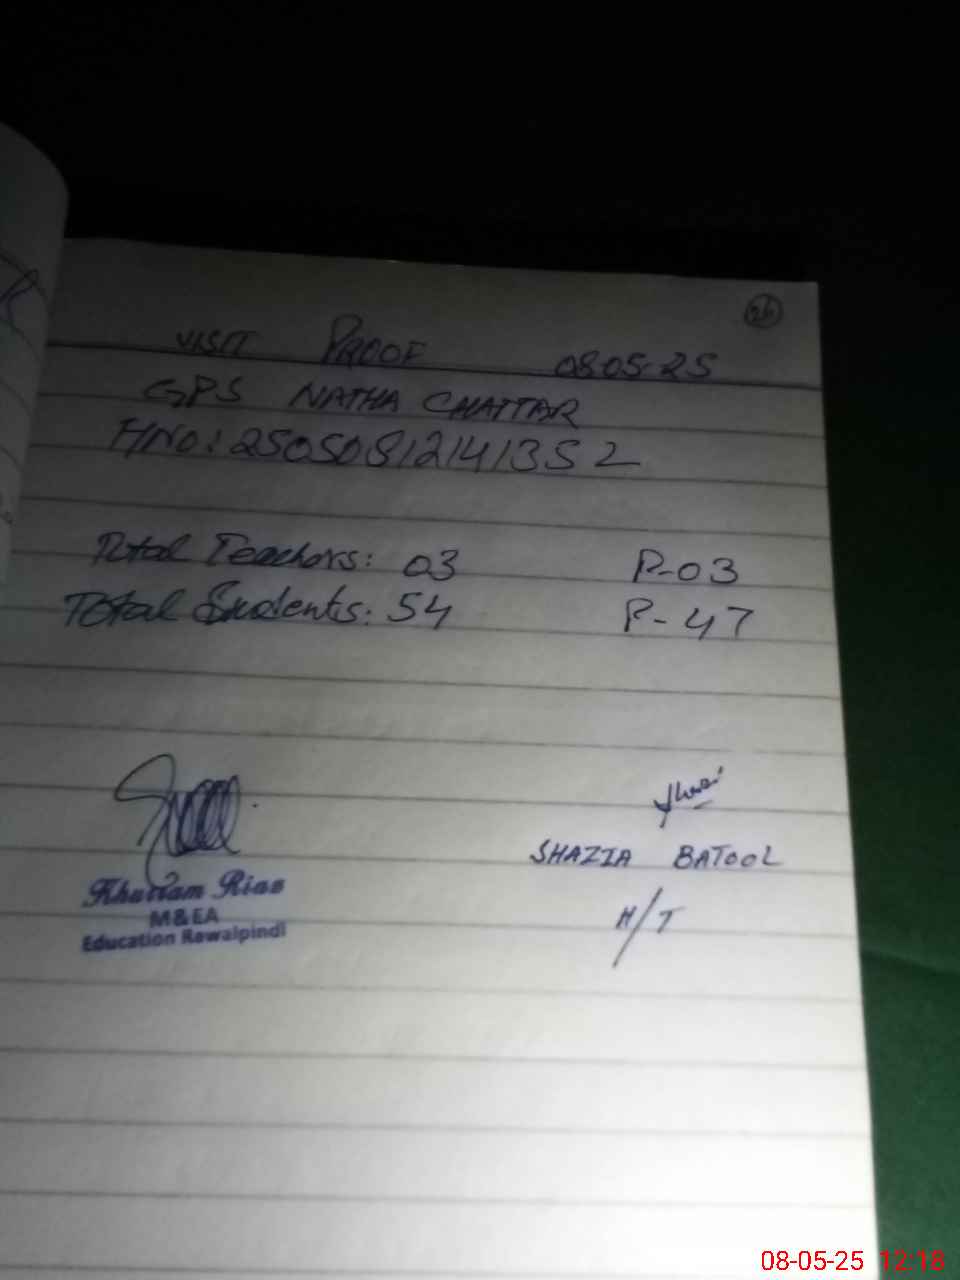 26
VISIT PROOF 08.05.25
GPS NATHA CHATTAR
HNO: 25050812141352
Total Teachers: 03 P-03
Total Students: 54 P-47
Khurram Riaz
M&EA
Education Rawalpindi
SHAZIA BATOOL
H/T
08-05-25 12:18